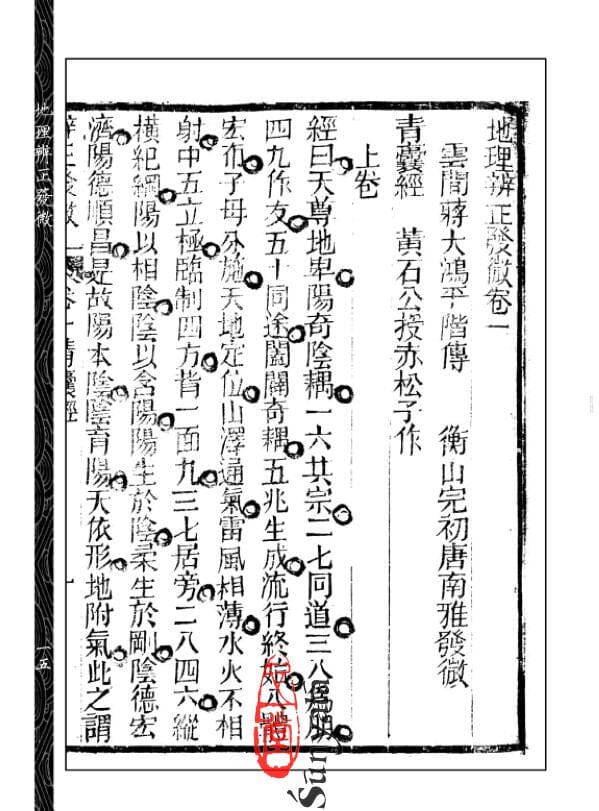 地理辨正發微卷一
雲間蔣大鴻平階傳　衡山完初唐南雅發微
青囊經　黃石公授赤松子作
上卷
經曰天尊地卑陽奇陰耦一六共宗二七同道三八爲朋
四九作友五十同途闔闢奇耦五兆生成流行終始八體
宏布子母分施天地定位山澤通氣雷風相薄水火不相
射中五立極臨制四方背一面九三七居旁二八四六縱
橫紀綱陽以相陰陰以含陽陽生於陰柔生於剛陰德宏
濟陽德順昌是故陽本陰陰育陽天依形地附氣此之謂
辨正發微　卷一青囊經
地理辨正發微
一五